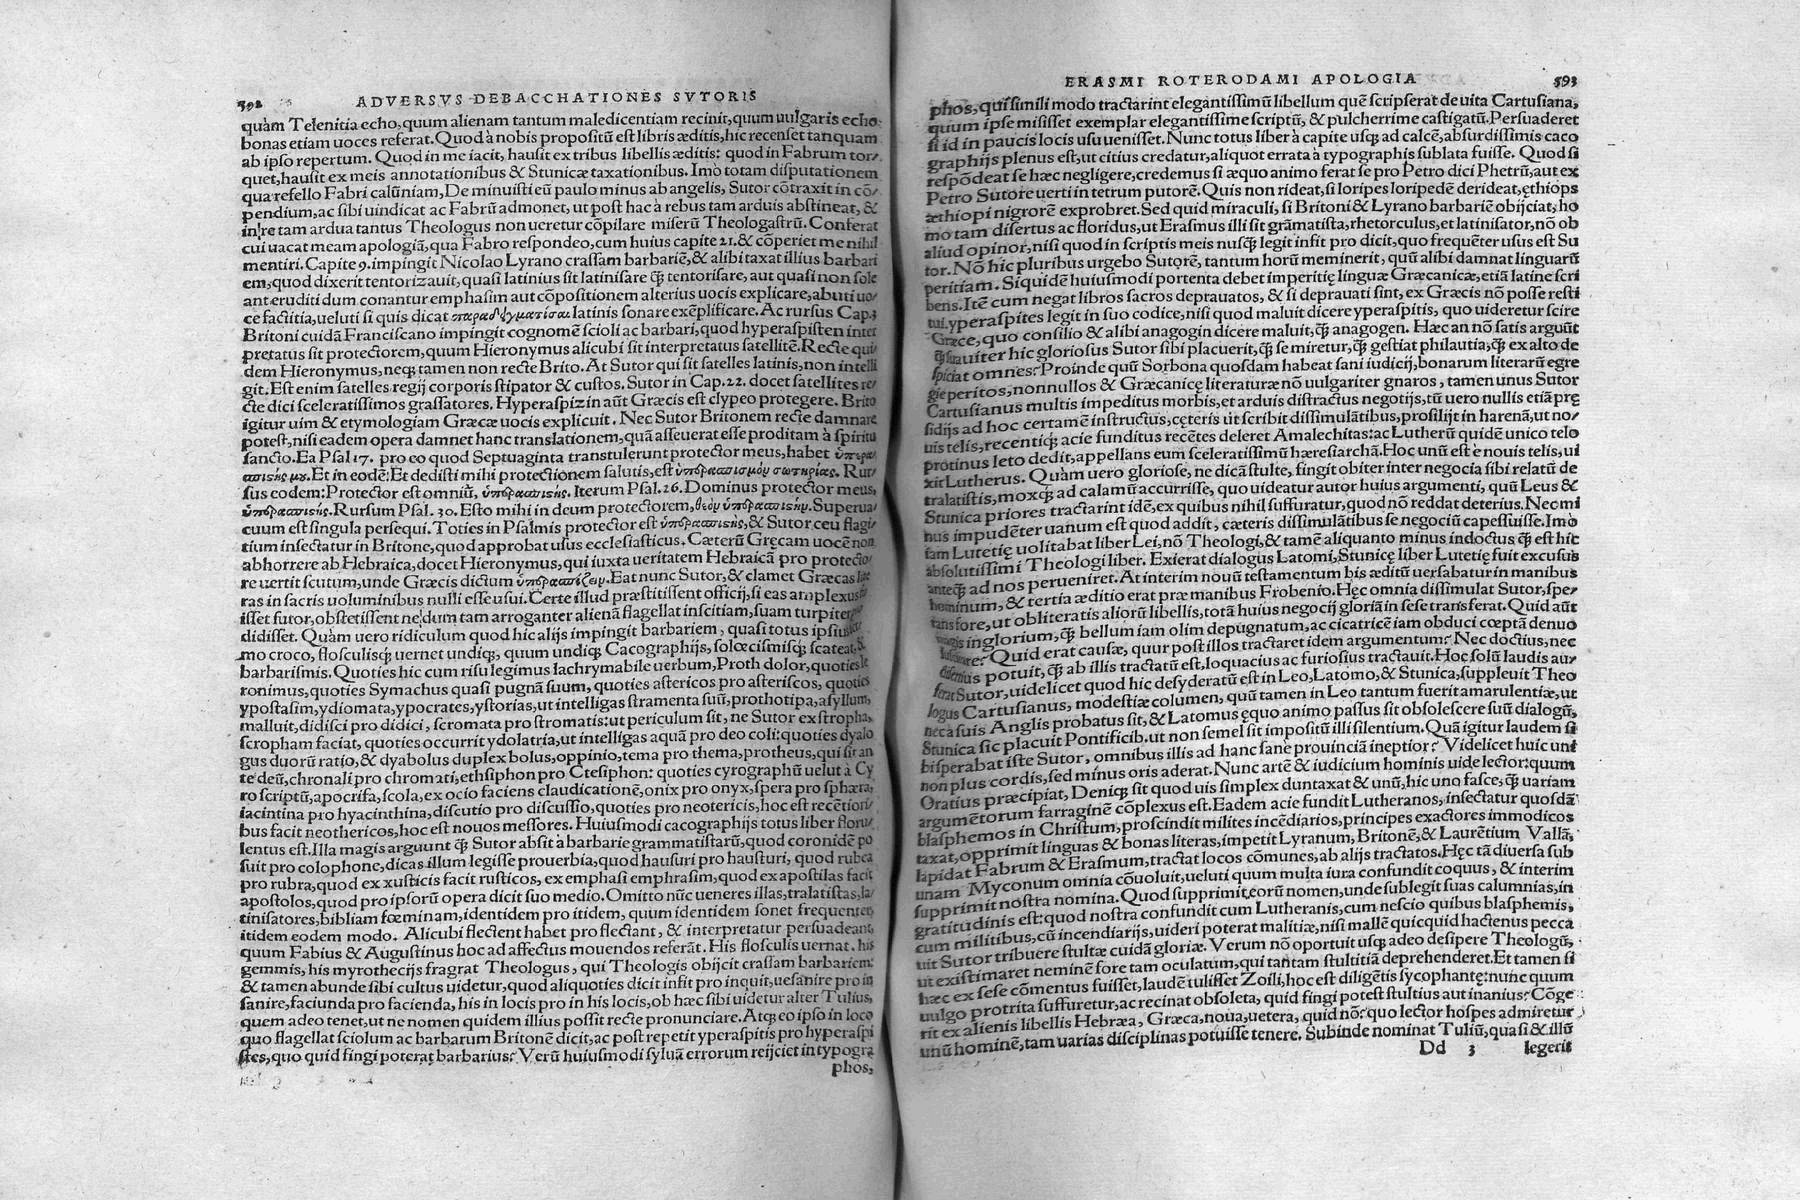 592 ADVERSVS DEBACCHATIONES SVTORIS
quàm Telenitia echo, quum alienam tantum maledicentiam recinit, quum uulgaris echo
bonas etiam uoces referat. Quod à nobis propositũ est libris æditis, hic recenset tanquam
ab ipso repertum. Quod in me iacit, hausit ex tribus libellis æditis: quod in Fabrum tor-
quet, hausit ex meis annotationibus & Stunicæ taxationibus. Imò totam disputationem
qua refello Fabri calũniam, De minuisti eũ paulo minus ab angelis, Sutor cõtraxit in cõ-
pendium, ac sibi uindicat ac Fabrũ admonet, ut post hac à rebus tam arduis abstineat, &
in re tam ardua tantus Theologus non ueretur cõpilare miserũ Theologastrũ. Conferat
cui uacat meam apologiã, qua Fabro respondeo, cum huius capite 21. & cõperiet me nihil
mentiri. Capite 9. impingit Nicolao Lyrano crassam barbariẽ, & alibi taxat illius barbari
em, quod dixerit tentorizauit, quasi latinius sit latinisare q̃ tentorisare, aut quasi non sole
ant eruditi dum conantur emphasim aut cõpositionem alterius uocis explicare, abuti uo-
ce factitia, ueluti si quis dicat παραδειγματίσαι latinis sonare exẽplificare. Ac rursus Cap. 3
Britoni cuidã Franciscano impingit cognomẽ scioli ac barbari, quod hyperaspisten inter
pretatus sit protectorem, quum Hieronymus alicubi sit interpretatus satellitẽ. Recte qui
dem Hieronymus, neq; tamen non recte Brito. At Sutor qui sit satelles latinis, non intelli
git. Est enim satelles regij corporis stipator & custos. Sutor in Cap. 22. docet satellites re-
cte dici sceleratissimos grassatores. Hyperaspizin aũt Græcis est clypeo protegere. Brito
igitur uim & etymologiam Græcæ uocis explicuit. Nec Sutor Britonem recte damnare
potest, nisi eadem opera damnet hanc translationem, quã asseuerat esse proditam à spiritu
sancto. Ea Psal 17. pro eo quod Septuaginta transtulerunt protector meus, habet ὑπερα-
σπιστής μου. Et in eodẽ: Et dedisti mihi protectionem salutis, est ὑπερασπισμὸν σωτηρίας. Rur-
sus codem: Protector est omniũ, ὑπερασπιστής. Iterum Psal. 26. Dominus protector meus,
ὑπερασπιστής. Rursum Psal. 30. Esto mihi in deum protectorem, θεὸν ὑπερασπιστήν. Superua-
cuum est singula persequi. Toties in Psalmis protector est ὑπερασπιστής, & Sutor ceu flagi-
tium insectatur in Britone, quod approbat usus ecclesiasticus. Cæterũ Gręcam uocẽ non
abhorrere ab Hebraica, docet Hieronymus, qui iuxta ueritatem Hebraicã pro protecto-
re uertit scutum, unde Græcis dictum ὑπερασπίζειν. Eat nunc Sutor, & clamet Græcas lite
ras in sacris uoluminibus nulli esse usui. Certe illud præstitissent officij, si eas amplexus
isset sutor, obstetissent ne dum tam arroganter alienã flagellat inscitiam, suam turpiter
didisset. Quàm uero ridiculum quod hic alijs impingit barbariem, quasi totus ipsius
mo croco, flosculisq; uernet undiq;, quum undiq; Cacographijs, solœcismisq; scateat, &
barbarismis. Quoties hic cum risu legimus lachrymabile uerbum, Proth dolor, quoties Ie
ronimus, quoties Symachus quasi pugnã suum, quoties astericos pro asteriscos, quoties
ypostasim, ydiomata, ypocrates, ystorias, ut intelligas stramenta suũ, prothotipa, asyllum,
malluit, didisci pro didici, scromata pro stromatis: ut periculum sit, ne Sutor ex stropha,
scropham faciat, quoties occurrit ydolatria, ut intelligas aquã pro deo coli: quoties dyalo
gus duorũ ratio, & dyabolus duplex bolus, oppinio, tema pro thema, protheus, qui sit an
te deũ, chronali pro chromati, ethsiphon pro Ctesiphon: quoties cyrographũ uelut à Cy
ro scriptũ, apocrifa, scola, ex ocio faciens claudicationẽ, onix pro onyx, spera pro sphæra,
iacintina pro hyacinthina, discutio pro discussio, quoties pro neotericis, hoc est recẽtiori-
bus facit neothericos, hoc est nouos messores. Huiusmodi cacographijs totus liber floru-
lentus est. Illa magis arguunt q̃ Sutor absit à barbarie grammatistarũ, quod coronidẽ po
suit pro colophone, dicas illum legisse prouerbia, quod hausuri pro hausturi, quod rubea
pro rubra, quod ex xusticis facit rusticos, ex emphasi emphrasim, quod ex apostilas facit
apostolos, quod pro ipsorũ opera dicit suo medio. Omitto nũc ueneres illas, tralatistas, la-
tinisatores, bibliam fœminam, identidem pro itidem, quum identidem sonet frequenter,
itidem eodem modo. Alicubi flectent habet pro flectant, & interpretatur persuadeant,
quum Fabius & Augustinus hoc ad affectus mouendos referãt. His flosculis uernat, his
gemmis, his myrothecijs fragrat Theologus, qui Theologis obijcit crassam barbariem:
& tamen abunde sibi cultus uidetur, quod aliquoties dicit infit pro inquit, uesanire pro in
sanire, faciunda pro facienda, his in locis pro in his locis, ob hæc sibi uidetur alter Tulius,
quem adeo tenet, ut ne nomen quidem illius possit recte pronunciare. Atq; eo ipso in loco
quo flagellat sciolum ac barbarum Britonẽ dicit, ac post repetit yperaspitis pro hyperaspi
stes, quo quid fingi poterat barbarius? Verũ huiusmodi syluã errorum reijciet in typogra
phos,
ERASMI ROTERODAMI APOLOGIA 593
phos, qui simili modo tractarint elegantissimũ libellum quẽ scripserat de uita Cartusiana,
quum ipse misisset exemplar elegantissime scriptũ, & pulcherrime castigatũ. Persuaderet
si id in paucis locis usu uenisset. Nunc totus liber à capite usq; ad calcẽ, absurdissimis caco
graphijs plenus est, ut citius credatur, aliquot errata à typographis sublata fuisse. Quod si
respõdeat se hæc negligere, credemus si æquo animo ferat se pro Petro dici Phetrũ, aut ex
Petro Sutore uerti in tetrum putorẽ. Quis non rideat, si loripes loripedẽ derideat, ęthiops
æthiopi nigrorẽ exprobret. Sed quid miraculi, si Britoni & Lyrano barbariẽ obijciat, ho
mo tam disertus ac floridus, ut Erasmus illi sit grãmatista, rhetorculus, et latinisator, nõ ob
aliud opinor, nisi quod in scriptis meis nusq̃ legit infit pro dicit, quo frequẽter usus est Su
tor. Nõ hic pluribus urgebo Sutorẽ, tantum horũ meminerit, quũ alibi damnat linguarũ
peritiam. Siquidẽ huiusmodi portenta debet imperitię linguæ Græcanicæ, etiã latine scri
bens. Itẽ cum negat libros sacros deprauatos, & si deprauati sint, ex Græcis nõ posse resti
tui. yperaspites legit in suo codice, nisi quod maluit dicere yperaspitis, quo uideretur scire
Græce, quo consilio & alibi anagogin dicere maluit, q̃ anagogen. Hæc an nõ satis arguũt
q̃ suauiter hic gloriosus Sutor sibi placuerit, q̃ se miretur, q̃ gestiat philautia, q̃ ex alto de
spiciat omnes? Proinde quũ Sorbona quosdam habeat sani iudicij, bonarum literarũ egre
gie peritos, nonnullos & Græcanicę literaturæ nõ uulgariter gnaros, tamen unus Sutor
Cartusianus multis impeditus morbis, et arduis distractus negotijs, tũ uero nullis etiã prę
sidijs ad hoc certamẽ instructus, cęteris ut scribit dissimulãtibus, prosilijt in harenã, ut no-
uis telis, recentiq; acie funditus recẽtes deleret Amalechitas: ac Lutherũ quidẽ unico telo
protinus leto dedit, appellans eum sceleratissimũ hæresiarchã. Hoc unũ est è nouis telis, ui
xit Lutherus. Quàm uero gloriose, ne dicã stulte, fingit obiter inter negocia sibi relatũ de
tralatistis, moxq; ad calamũ accurrisse, quo uideatur autor huius argumenti, quũ Leus &
Stunica priores tractarint idẽ, ex quibus nihil suffuratur, quod nõ reddat deterius. Nec mi
nus impudẽter uanum est quod addit, cæteris dissimulãtibus se negociũ capessuisse. Imò
iam Lutetię uolitabat liber Lei, nõ Theologi, & tamẽ aliquanto minus indoctus q̃ est hic
absolutissimi Theologi liber. Exierat dialogus Latomi, Stunicę liber Lutetię fuit excusus
anteq̃ ad nos perueniret. At interim nouũ testamentum bis æditũ uersabatur in manibus
hominum, & tertia æditio erat præ manibus Frobenio. Hęc omnia dissimulat Sutor, spe-
rans fore, ut obliteratis aliorũ libellis, totã huius negocij gloriã in sese transferat. Quid aũt
magis inglorium, q̃ bellum iam olim depugnatum, ac cicatricẽ iam obduci cœptã denuo
Quid erat causæ, quur post illos tractaret idem argumentum? Nec doctius, nec
disertius potuit, q̃ ab illis tractatũ est, loquacius ac furiosius tractauit. Hoc solũ laudis au-
ferat Sutor, uidelicet quod hic desyderatũ est in Leo, Latomo, & Stunica, suppleuit Theo
logus Cartusianus, modestiæ columen, quũ tamen in Leo tantum fuerit amarulentiæ, ut
nec à suis Anglis probatus sit, & Latomus ęquo animo passus sit obsolescere suũ dialogũ,
Stunica sic placuit Pontificib. ut non semel sit impositũ illi silentium. Quã igitur laudem si
bi sperabat iste Sutor, omnibus illis ad hanc sane prouinciã ineptior? Videlicet huic uni
non plus cordis, sed minus oris aderat. Nunc artẽ & iudicium hominis uide lector: quum
Oratius præcipiat, Deniq; sit quod uis simplex duntaxat & unũ, hic uno fasce, q̃ uariam
argumẽtorum farraginẽ cõplexus est. Eadem acie fundit Lutheranos, insectatur quosdã
blasphemos in Christum, proscindit milites incẽdiarios, principes exactores immodicos
taxat, opprimit linguas & bonas literas, impetit Lyranum, Britonẽ, & Laurẽtium Vallã,
lapidat Fabrum & Erasmum, tractat locos cõmunes, ab alijs tractatos. Hęc tã diuersa sub
unam Myconum omnia cõuoluit, ueluti quum multa iura confundit coquus, & interim
supprimit nostra nomina. Quod supprimit eorũ nomen, unde sublegit suas calumnias, in
gratitudinis est: quod nostra confundit cum Lutheranis, cum nescio quibus blasphemis,
cum militibus, cũ incendiarijs, uideri poterat malitiæ, nisi mallẽ quicquid hactenus pecca
uit Sutor tribuere stultæ cuidã gloriæ. Verum nõ oportuit usq; adeo desipere Theologũ,
ut existimaret neminẽ fore tam oculatum, qui tantam stultitiã deprehenderet. Et tamen si
hæc ex sese cõmentus fuisset, laudẽ tulisset Zoili, hoc est diligẽtis sycophantę: nunc quum
uulgo protrita suffuretur, ac recinat obsoleta, quid fingi potest stultius aut inanius? Cõge
rit ex alienis libellis Hebræa, Græca, noua, uetera, quid nõ? quo lector hospes admiretur
unũ hominẽ, tam uarias disciplinas potuisse tenere. Subinde nominat Tuliũ, quasi & illũ
Dd 3 legerit